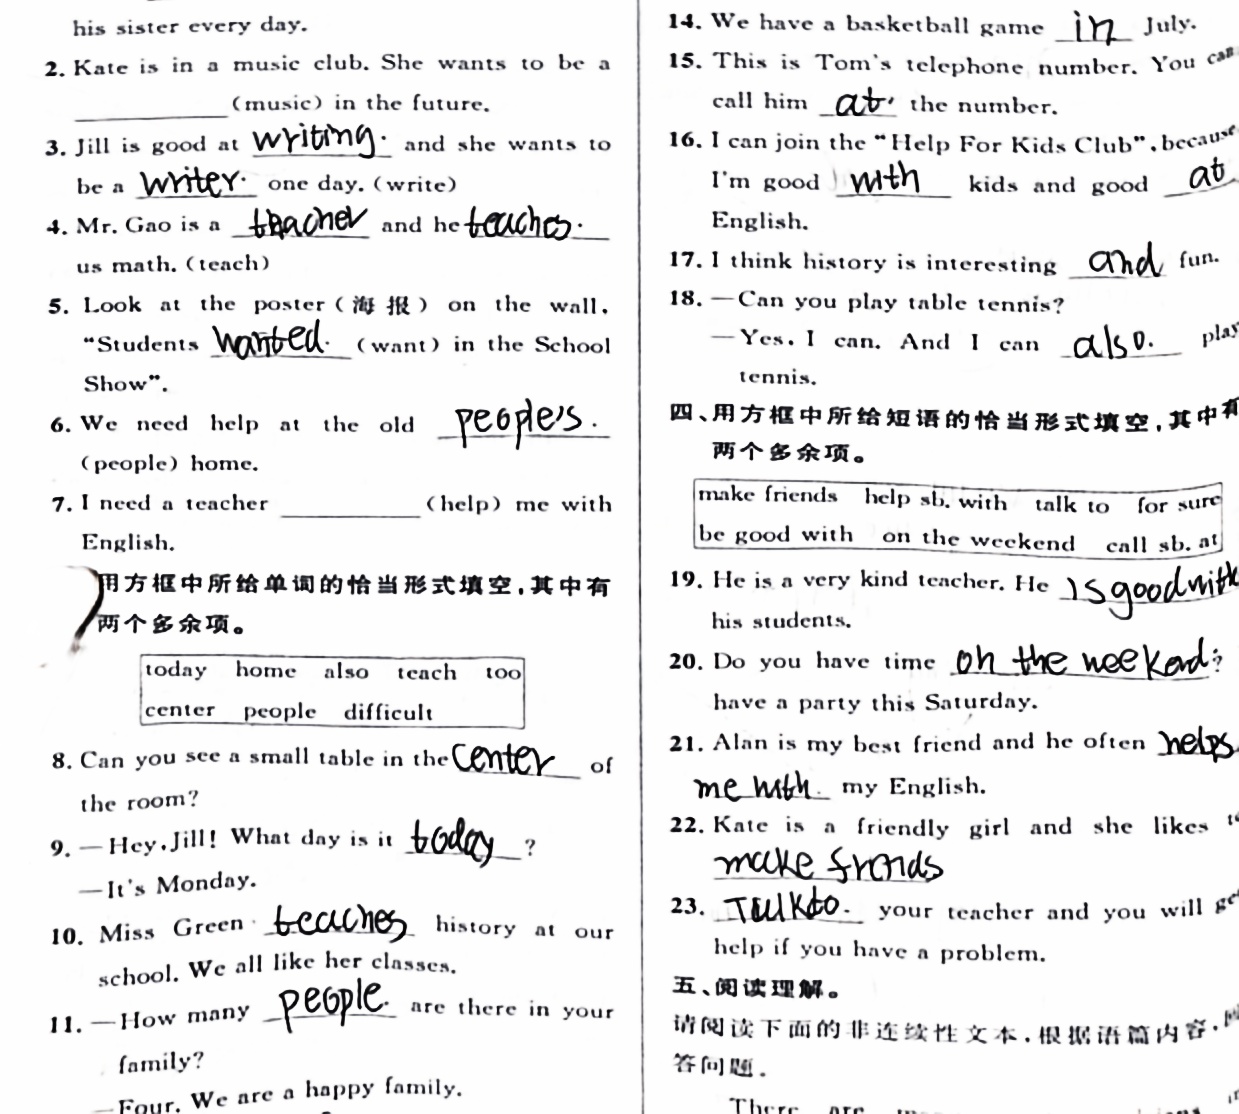 his sister every day.
2. Kate is in a music club. She wants to be a
__________ (music) in the future.
3. Jill is good at writing. and she wants to
be a writer. one day. (write)
4. Mr. Gao is a teacher and he teaches.
us math. (teach)
5. Look at the poster (海报) on the wall.
"Students wanted. (want) in the School
Show".
6. We need help at the old people's.
(people) home.
7. I need a teacher __________ (help) me with
English.
用方框中所给单词的恰当形式填空,其中有
两个多余项。
today home also teach too
center people difficult
8. Can you see a small table in the center of
the room?
9. —Hey, Jill! What day is it today ?
—It's Monday.
10. Miss Green teaches history at our
school. We all like her classes.
11. —How many people. are there in your
family?
—Four. We are a happy family.
14. We have a basketball game in July.
15. This is Tom's telephone number. You can
call him at. the number.
16. I can join the "Help For Kids Club", because
I'm good with kids and good at
English.
17. I think history is interesting and fun.
18. —Can you play table tennis?
—Yes. I can. And I can also. play
tennis.
四、用方框中所给短语的恰当形式填空,其中有
两个多余项。
make friends help sb. with talk to for sure
be good with on the weekend call sb. at
19. He is a very kind teacher. He is good with
his students.
20. Do you have time on the weekend? 
have a party this Saturday.
21. Alan is my best friend and he often helps
me with. my English.
22. Kate is a friendly girl and she likes
make frends
23. Talk to. your teacher and you will
help if you have a problem.
五、阅读理解。
请阅读下面的非连续性文本,根据语篇内容,
答问题.
There are